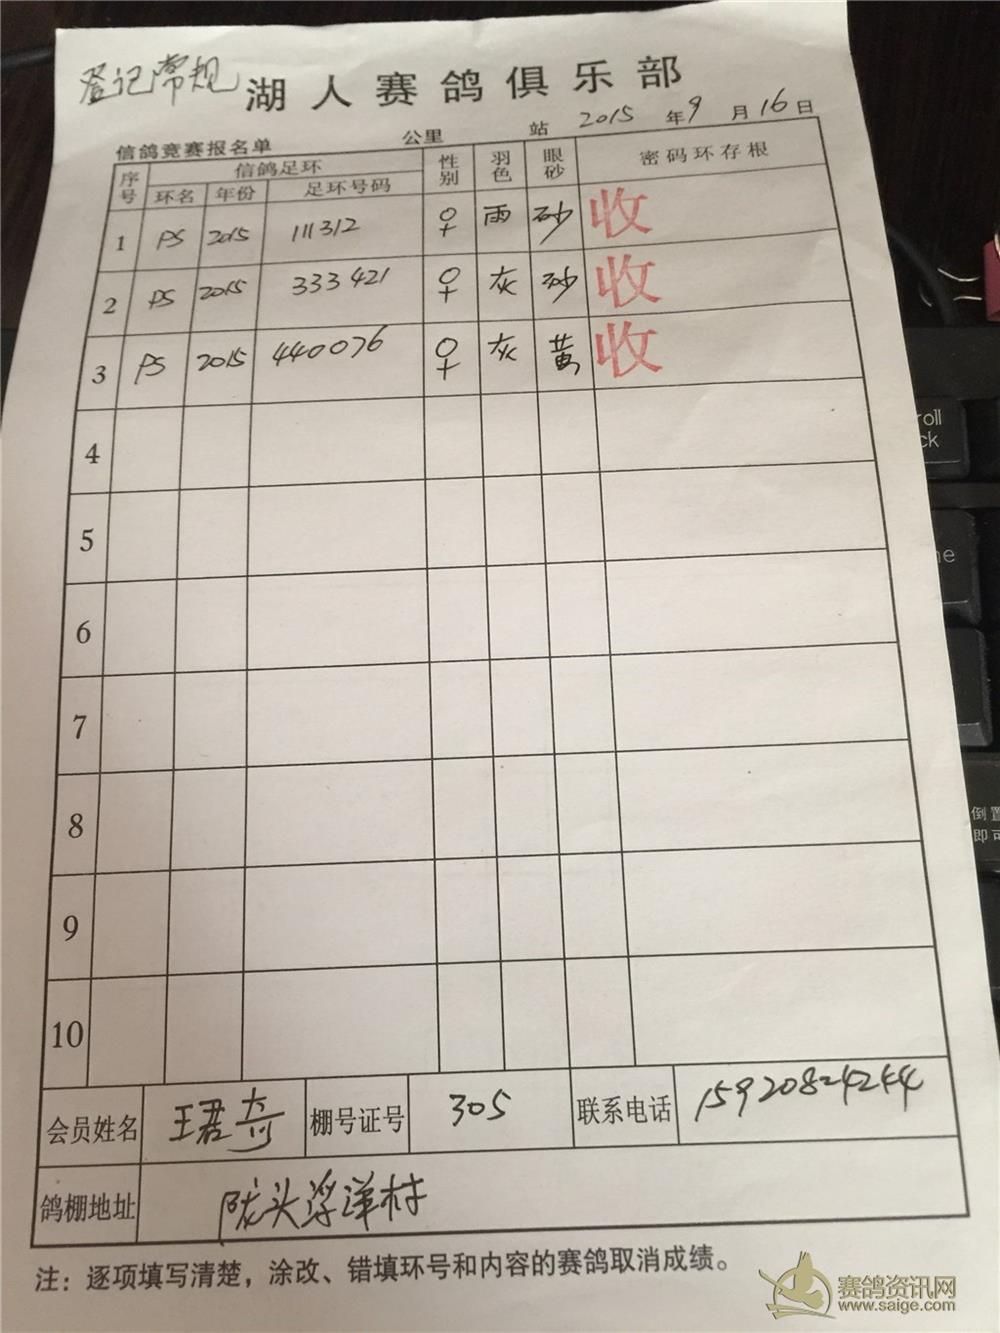 登记常规
湖人赛鸽俱乐部
信鸽竞赛报名单 公里 站 2015 年 9 月 16 日
序号 信鸽足环 性别 羽色 眼砂 密码环存根
环名 年份 足环号码
1 PS 2015 111312 ♀ 雨 砂 收
2 PS 2015 333421 ♀ 灰 砂 收
3 PS 2015 440076 ♀ 灰 黄 收
4
5
6
7
8
9
10
会员姓名 王君奇 棚号证号 305 联系电话 15920824244
鸽棚地址 陇头浮洋村
注：逐项填写清楚，涂改、错填环号和内容的赛鸽取消成绩。
赛鸽资讯网
www.saige.com
roll
ck
me
倒置
即可